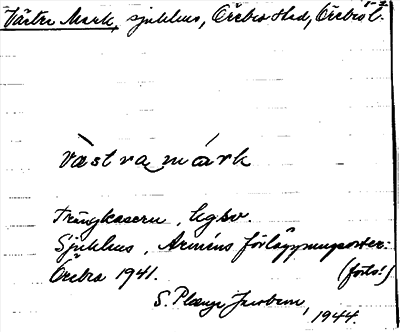 Västra Mark, sjukhus, Örebro stad, Örebro l.
västramárk
Trängkasern, Lgbv.
Sjukhus, Arméns förläggningsorter:
Örebro 1941. (forts!)
S. Jacobson,
1944.